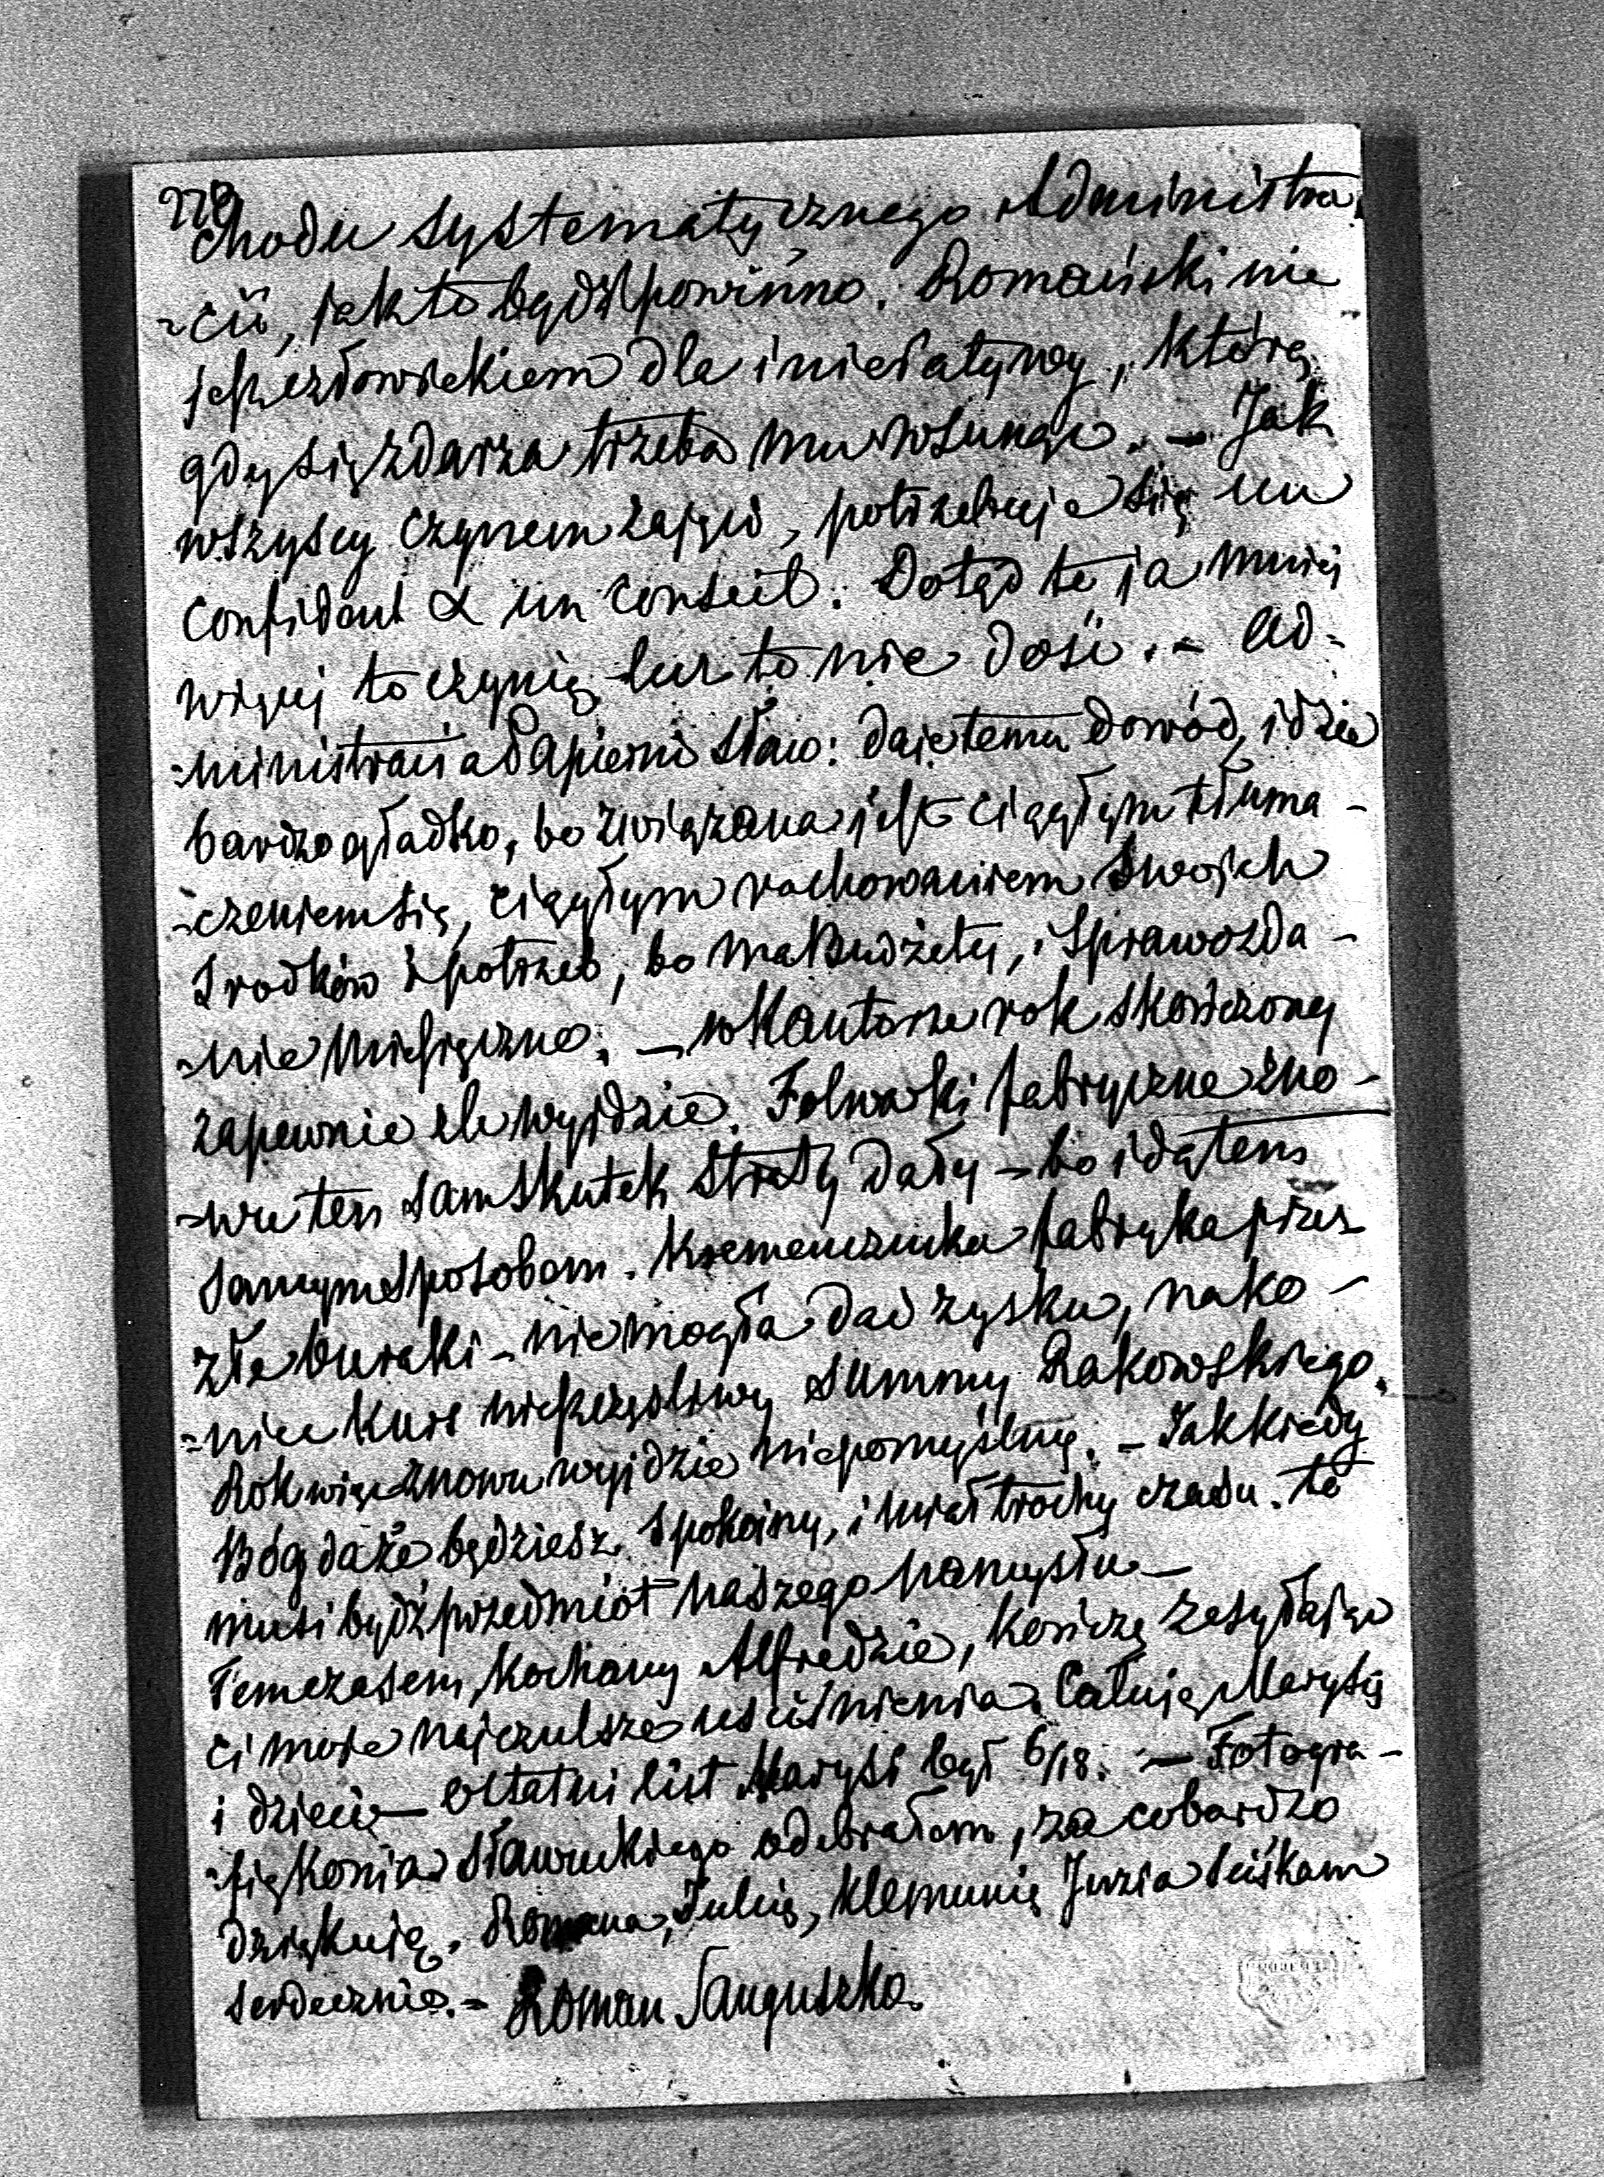 228
chodu systematycznego Administra
-cii, jak to bydź powinno. Romański nie
jest człowiekiem dla iniciatywy, którą
gdy się zdarza trzeba mu wsunąć. — Jak
wszyscy czynem zajęci, potrzebuje się un
confident & un conseil. Dotąd te ja mniej
więcej to czynię lecz to nie dość. — Ad-
-ministracia Papierni Sław: daje temu dowód, idzie
bardzo gładko, bo związana jest ciągłym tłuma-
-czeniem się, ciągłym rachowaniem swojch
srodków i potrzeb, bo ma Budżety, i Sprawozda-
-nie Miesięczne. — w Kantorze rok skończony
zapewnie źle wyjdzie. Folwarki fabryczne zno-
-wu ten sam skutek straty dały — bo idą tem
samym sposobem. Kremenczucka fabryka przez
złe buraki — nie mogła dać zysku, nako-
-niec kurs nieszczęsliwy summy Rakowskiego.
Rok więc znowu wyjdzie niepomyślny. — Jak kiedy
Bóg da że będziesz spokoiny, i miał trochy czasu. to
musi bydź przedmiot naszego namysłu —
Temczasem, Kochany Alfredzie, kończę zesyłając
ci moje najczulsze uściśnienia. Całuję Marysię
i dzieci — ostatni list Marysi był 6/18. — Fotogra-
-fię Konia Sławuckiego odebrałem, za co bardzo
dziękuię. Romana, Julcię, Klemunię Juzia sciskam
serdecznie. — Roman Sanguszko.